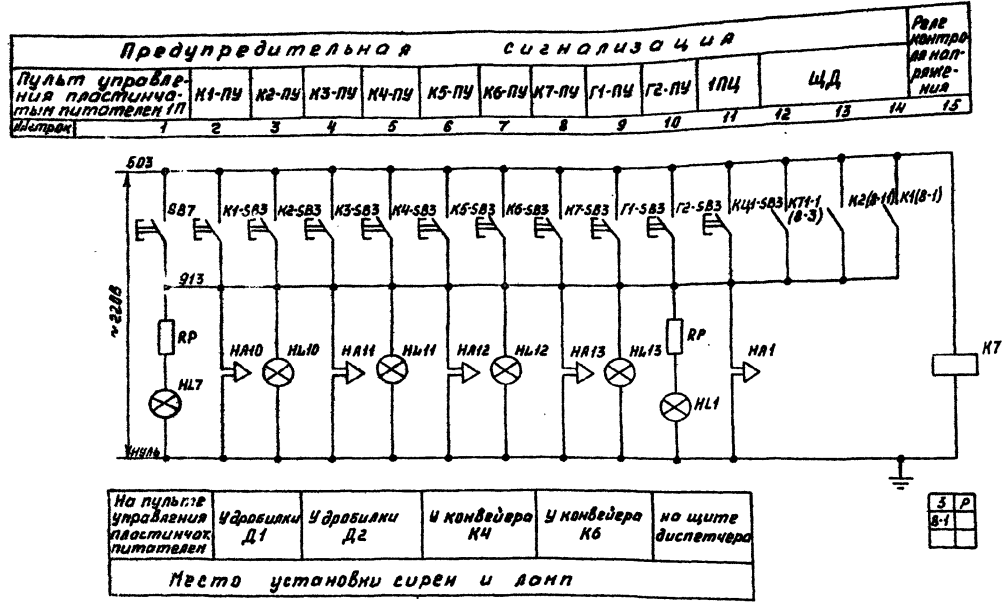 Предупредительная сигнализация
Реле
контро
ля нап-
ряже-
ния
Пульт управле-
ния пластинча-
тым питателем 1П
К1-ПУ К2-ПУ К3-ПУ К4-ПУ К5-ПУ К6-ПУ К7-ПУ Г1-ПУ Г2-ПУ 1ПЦ ЩД
1 2 3 4 5 6 7 8 9 10 11 12 13 14 15
603
SB7 К1-SB3 К2-SB3 К3-SB3 К4-SB3 К5-SB3 К6-SB3 К7-SB3 Г1-SB3 Г2-SB3 КЦ1-SB3 КТ1-1 К2(8-11) К1(8-1)
(8-3)
913
~220В
RP HA10 HL10 HA11 HL11 HA12 HL12 HA13 HL13 RP HA1 К7
HL7 HL1
нуль
На пульте
управления
пластинчат
питателем
У дробилки
Д1
У дробилки
Д2
У конвейера
К4
У конвейера
К6
на щите
диспетчера
Место установки сирен и ламп
З Р
8-1